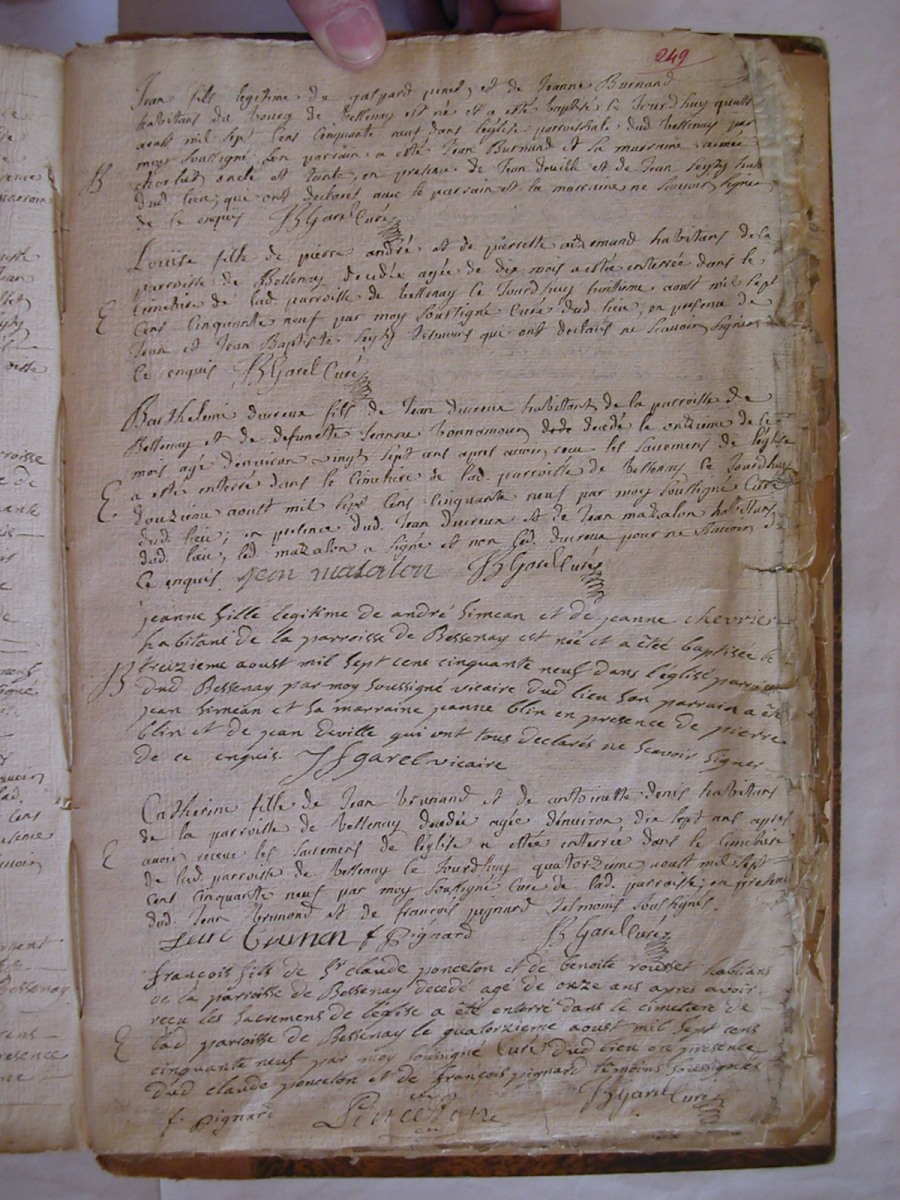 249
Jean fils legitime de gaspard et de Jeanne Burnand
habitans du bourg de Bessenay est né et a esté baptisé ce Jourdhuy quatre
aoust mil sept cens cinquante neuf dans léglise parroissiale dud Bessenay par
moy soussigné, son parrain a esté Jean Burnand et sa marraine aimée
B charlut, oncle et tante, en presence de Jean deville et de Jean hab
dud. lieu, qui ont declaré avec le parrain et la marraine ne scavoir signer
de ce enquis JBGarel Curé
Louise fille de pierre andré et de pierrette habitans de la
parroisse de Bessenay decedée agée de dix mois a estée enterrée dans le
cimetiere de lad. parroisse de bessenay ce Jourdhuy huitieme aoust mil sept
E cens cinquante neuf par moy soussigné Curé dud lieu, en presence de
Jean et Jean Baptiste temoins qui ont declarés ne scavoir signer de
ce enquis JBGarel Curé
Barthelemi ducreux fils de Jean ducreux habittant de la parroisse de
Bessenay et de defunte Jeanne bonnamour decedé le onzieme de ce
mois agé denviron vingt sept ans apres avoir receu les sacremens de léglise
a esté enterré dans le cimetiere de lad. parroisse de bessenay ce Jourdhuy
E douzieme aoust mil sept cens cinquante neuf par moy soussigné Curé
dud. lieu, en presence dud. Jean ducreux et de Jean mazalon habittans
dud. lieu, led. mazalon a signé et non led. ducreux pour ne scavoir de
ce enquis. jean mazalon JBGarel Curé
jeanne fille legitime de andré simean et de jeanne chevrier
habitans de la parroisse de Bessenay est née et a étée baptisée le
treizieme aoust mil sept cens cinquante neuf dans léglise parroiss
B dud Bessenay par moy soussigné vicaire dud lieu son parrain a été
jean simean et sa marraine jeanne blin en presence de pierre
blin et de jean deville qui ont tous declarés ne scavoir signer
de ce enquis garel vicaire
Catherine fille de Jean et de antoinette denis habitans
de la parroisse de bessenay decedée agée denviron dix sept ans apres
E avoir receue les sacremens de léglise a estée enterrée dans le cimetiere
de lad. parroisse de bessenay ce Jourdhuy quatorzieme aoust mil sept
cens cinquante neuf par moy soussigné Curé de lad. parroisse, en presence
dud. Jean et de françois pignard temoins soussignés.
f pignard JBGarel Curé
françois fils de Sr claude ponceton et de benoite rousset habitans
de la parroisse de Bessenay decedé agé de onze ans apres avoir
receu les sacremens de léglise a été enterré dans le cimetiere de
E lad parroisse de Bessenay le quatorzieme aoust mil sept cens
cinquante neuf par moy soussigné Curé dud lieu en presence
dud claude ponceton et de françois pignard temoins soussignés
f. pignard Ponceton JBgarel Curé